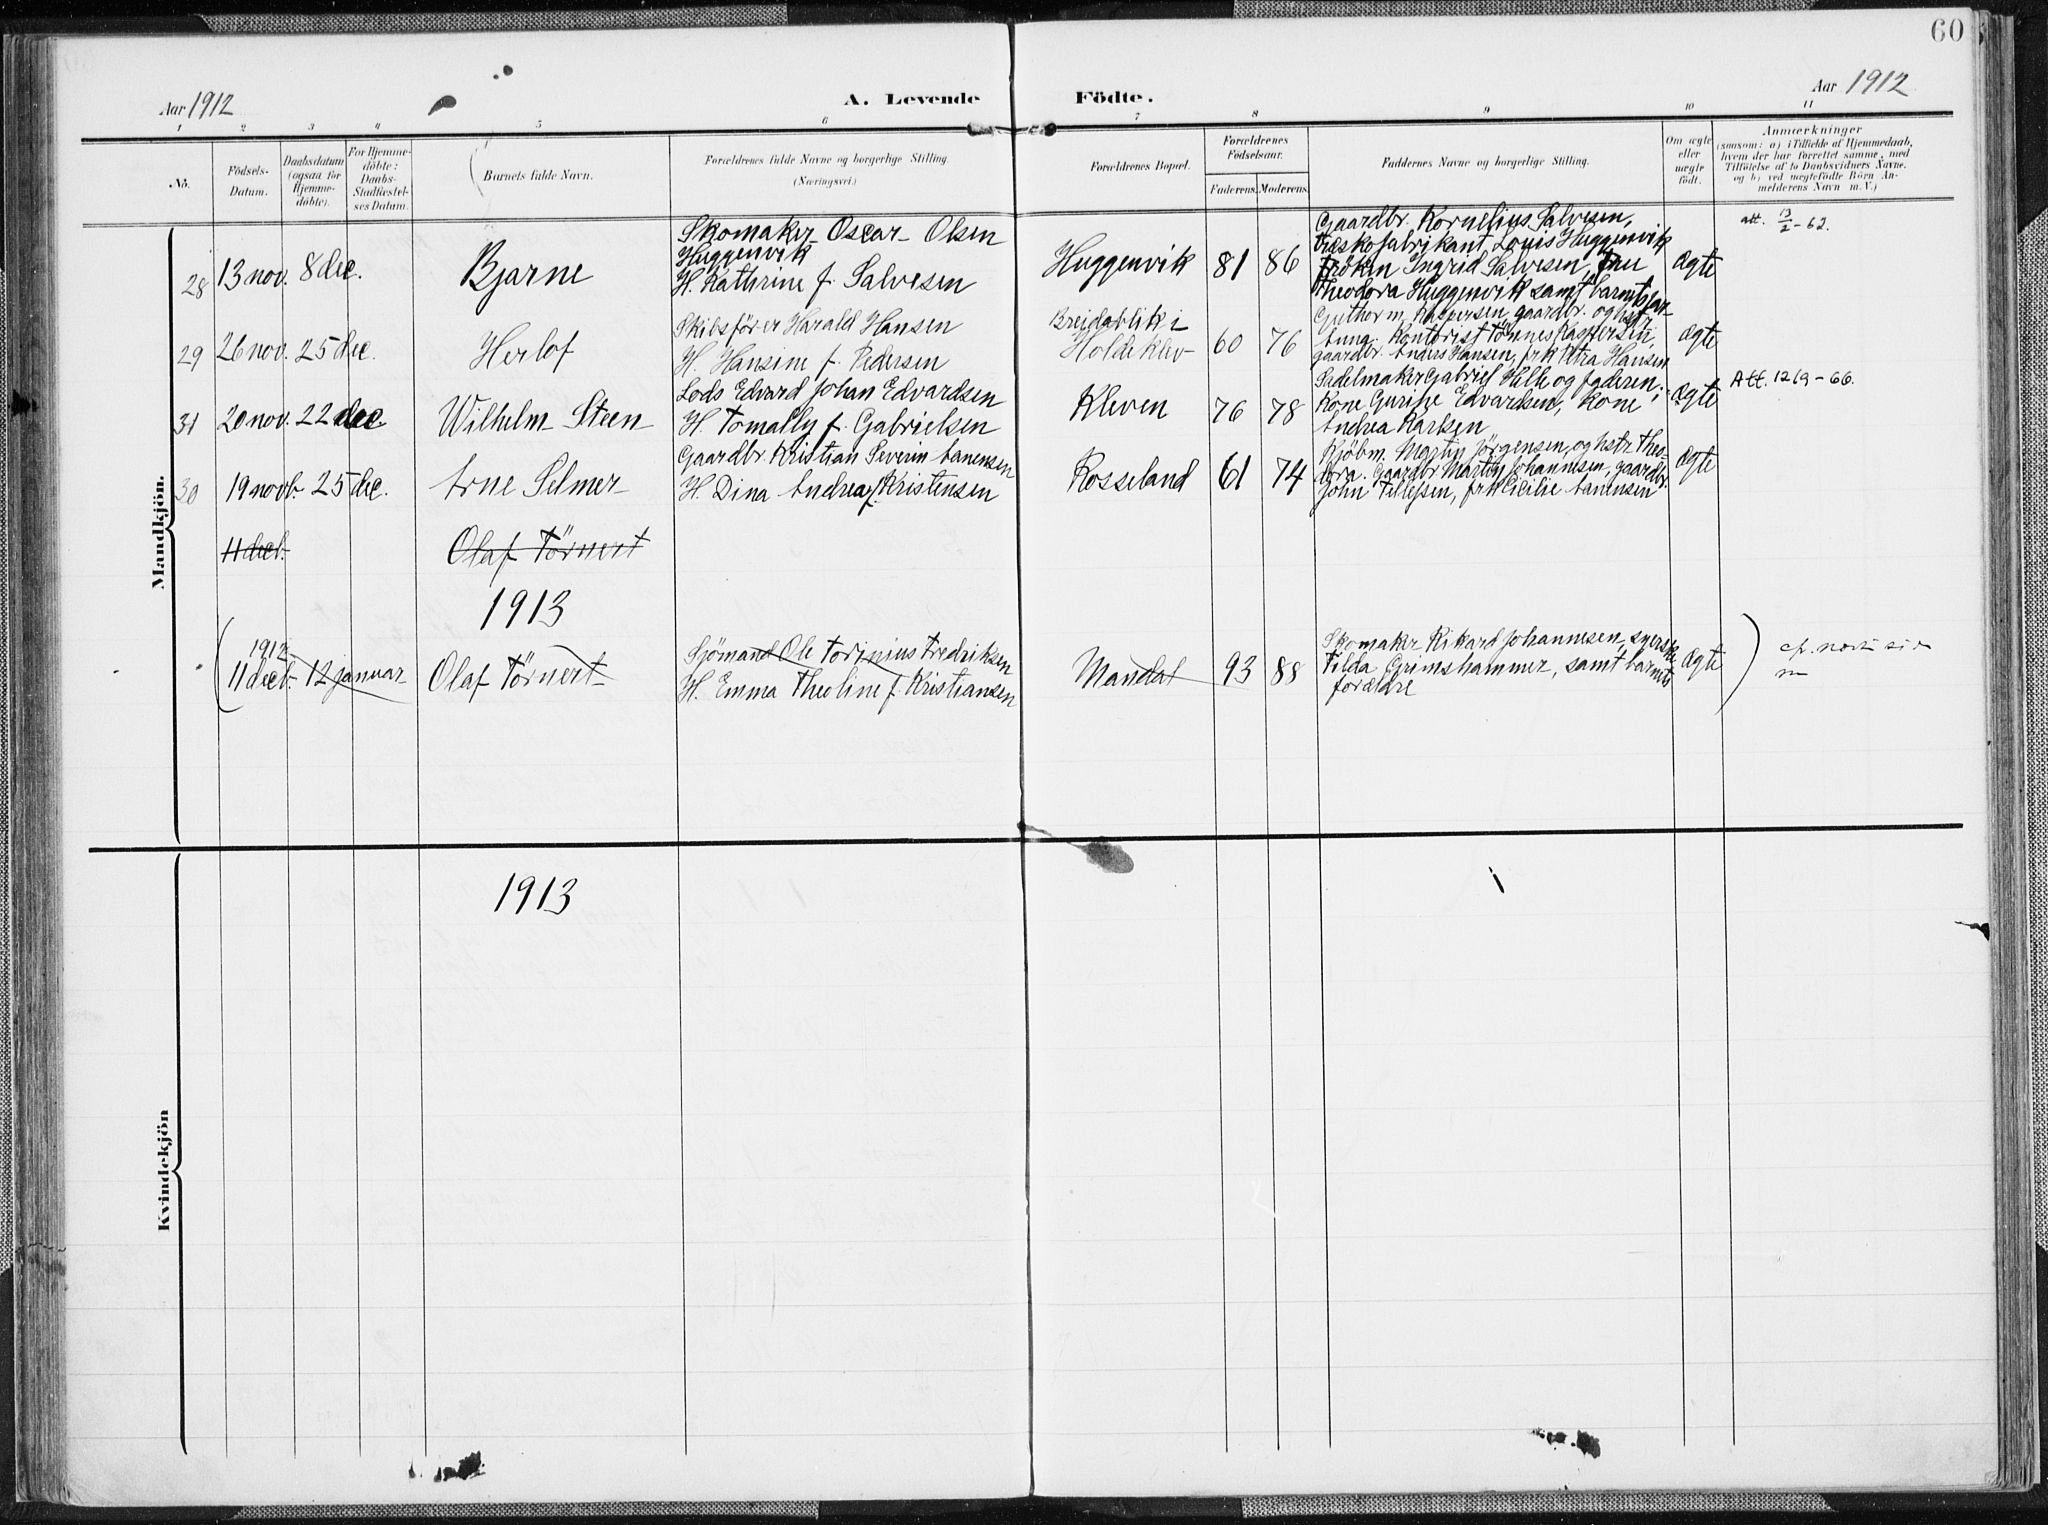 60
Aar 1912
A. Levende Födte.
Aar 1912
1 2 3 4 5 6 7 8 9 10 11
No.
Födsels-
Datum.
Daabsdatum
(ogsaa for
Hjemme-
döbte).
For Hjemme-
döbte:
Daabs-
Stadfæstel-
ses Datum.
Barnets fulde Navn.
Forældrenes fulde Navne og borgerlige Stilling.
(Næringsvei.)
Forældrenes Bopæl.
Forældrenes
Födselsaar.
Faderens. Moderens.
Faddernes Navne og borgerlige Stilling.
Om ægte
eller
uægte
födt.
Anmærkninger
(saasom: a) i Tilfælde af Hjemmedaab,
hvem der har forrettet samme, med
Tilföielse af to Daabsvidners Navne.
og b) ved uægtefödte Börn An-
melderens Navn m. V.)
Mandkjön.
28 13 nov. 8 dec. Bjarne
Skomaker Oscar Olsen
Huggenvik
H. Kathrine f. Salvesen
Huggenvik 81 86
Gaardbr. Kornelius Salvesen,
træskofabrikant Louis Huggenvik
Fröken Ingrid Salvesen, Frue
Theodora Huggenvik samt barnets far
ægte
att. 13/2-62.
29 26 nov. 25 dec. Herlof
Skibsförer Harald Hansen
H. Hansine f. Pedersen
Breidablik i
Holdeklev 60 76
Guthorm Kaspersen, gaardbr. og hstr
Anna. Kontorist Tönnes Kaspersen,
gaardbr. Anders Hansen, frk Petra Hansen
ægte
31 20 nov. 22 dec. Wilhelm Steen
Lods Edvard Johan Edvardsen
H. Tomally f. Gabrielsen
Kleven 76 78
Sadelmaker Gabriel Hille og faderen.
Kone Guripe Edvardsen, kone
Andrea Karlsen
ægte
Att. 12/9-66.
30 19 novb 25 dec. Arne Selmer
Gaardbr. Kristian Severin Aanensen
H. Dina Andrea f. Kristensen
Rosseland 61 74
Kjöbm. Martin Jörgensen, og hstr Theo-
dora. Gaardbr Martin Johannesen, gaardbr.
John Tillefsen, frk Cicilie Aanensen
ægte
11 decb. Olaf Törnert
1913
1912
(11 decb. 12 januar Olaf Törnert
Sjömand Ole Torjinius Fredriksen
H. Emma Theoline f. Kristiansen
Mandal 93 88
Skomaker Rikard Johannesen, syerske
Tilda Grimshammer, samt barnets
forældre
ægte )
cf. næste side
Kvindekjön
1913